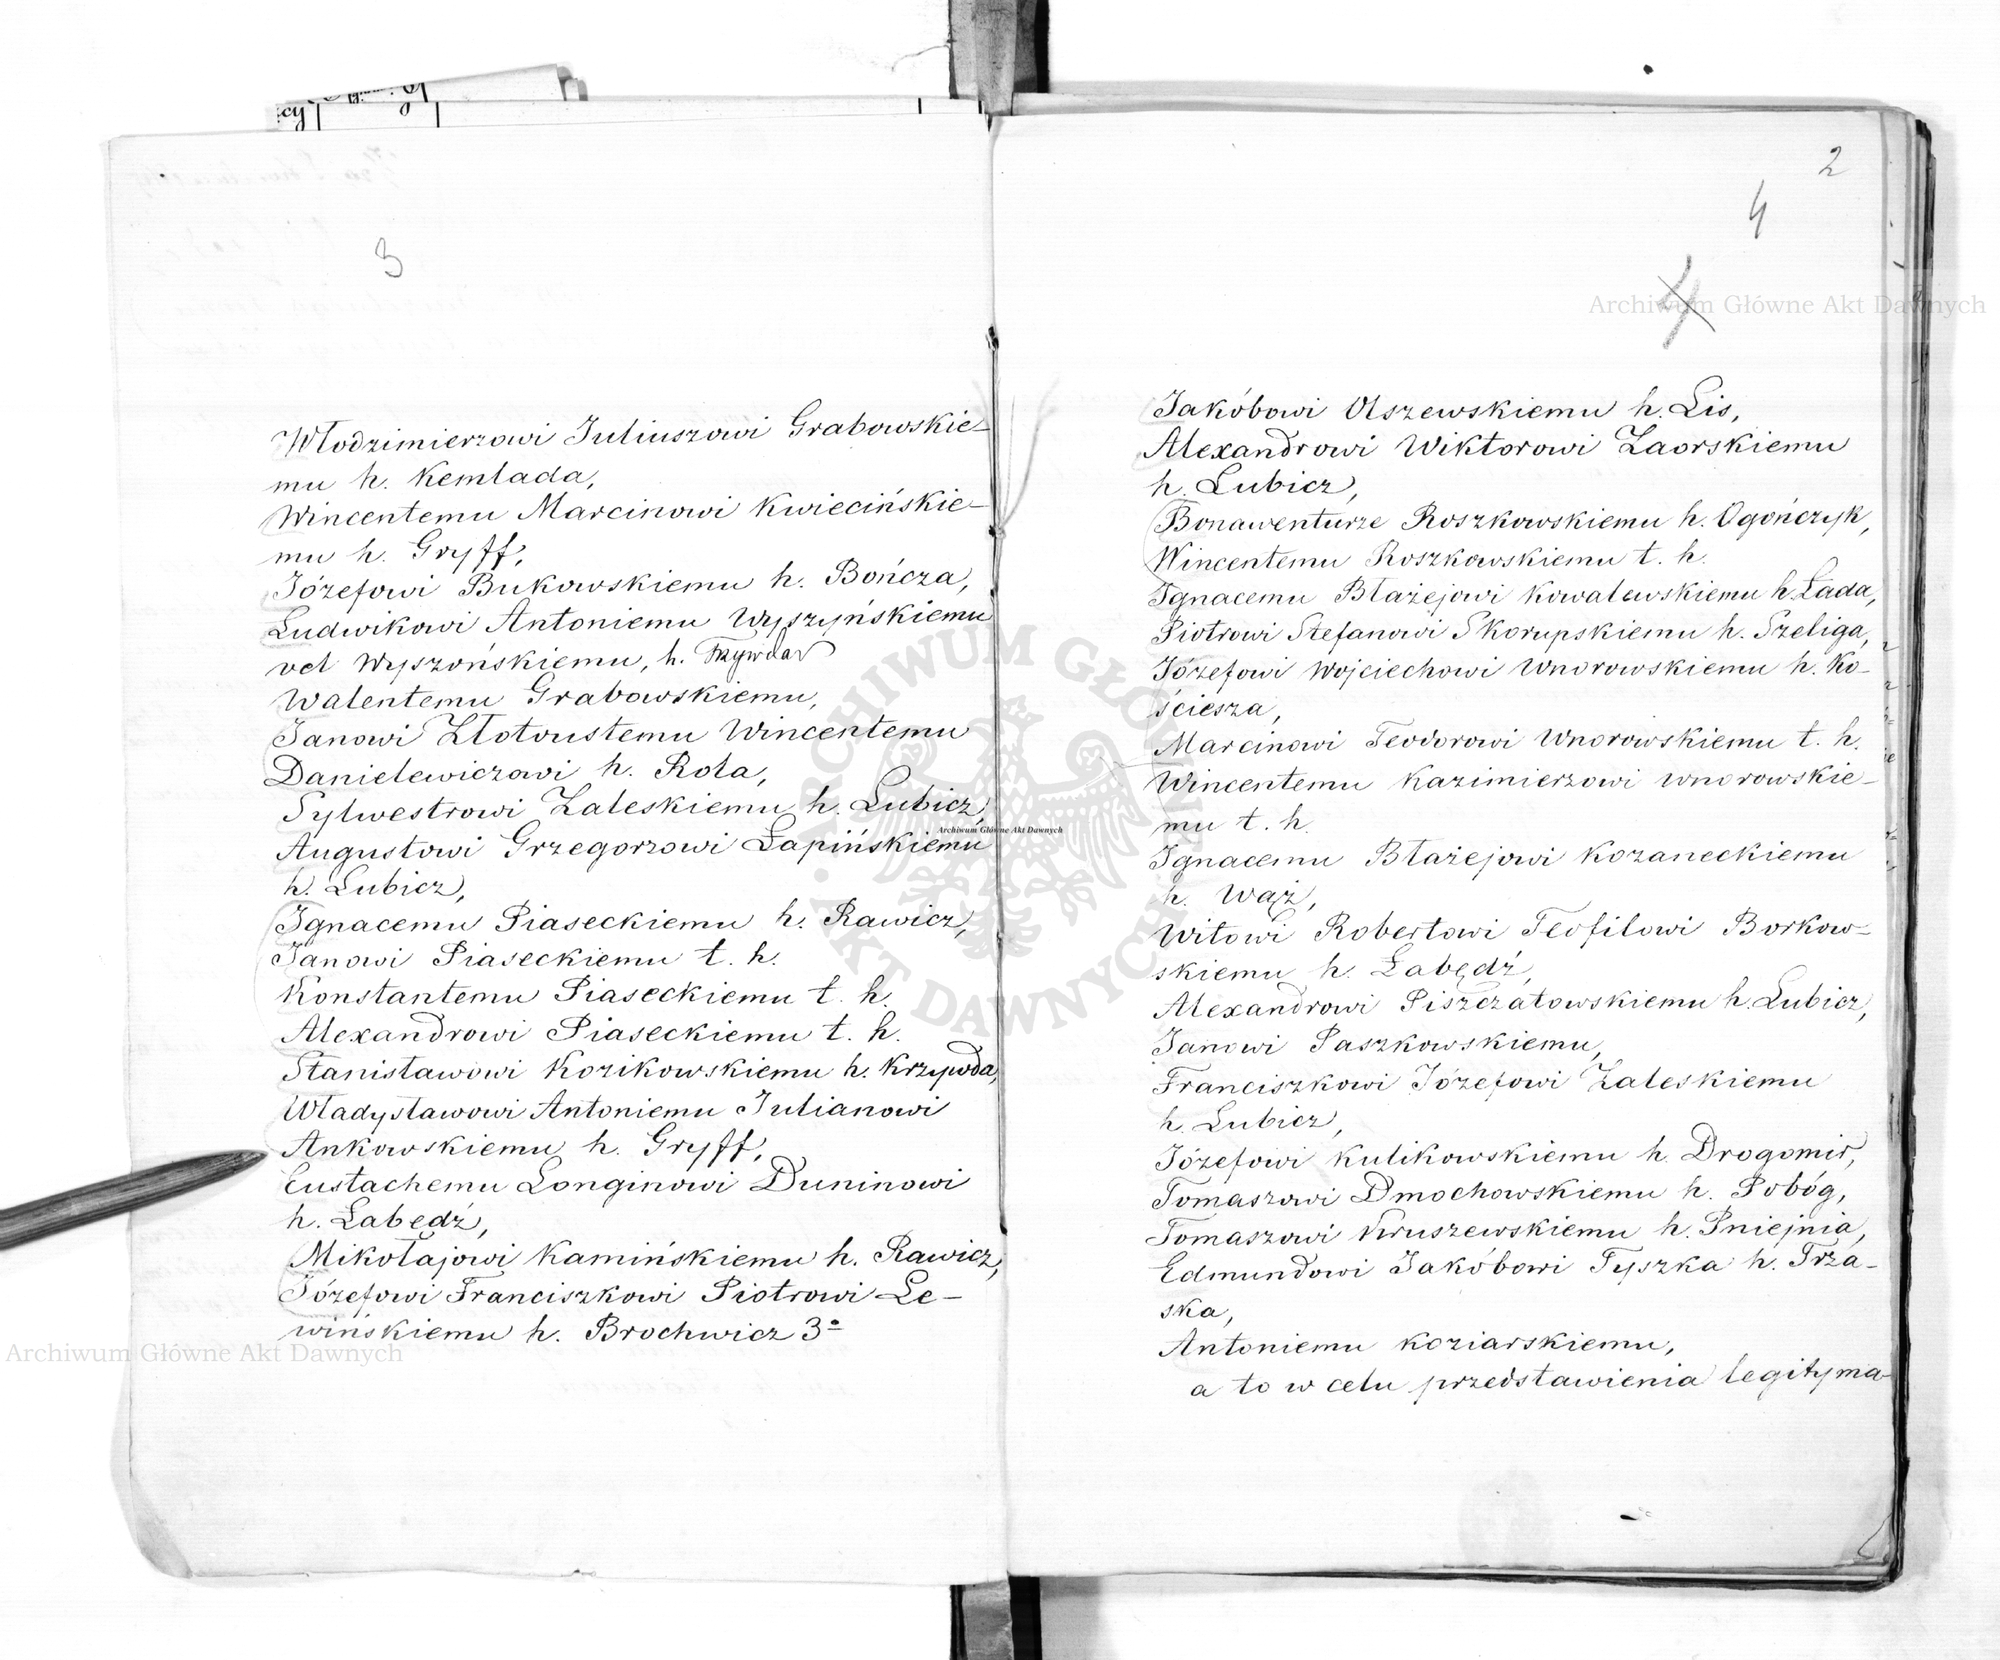 3
Włodzimierzowi Juliuszowi Grabowskie-
mu h. Kemlada,
Wincentemu Marcinowi Kwiecińskie-
mu h. Gryff,
Józefowi Bukowskiemu h. Bończa,
Ludwikowi Antoniemu Wyszyńskiemu
vel Wyszońskiemu, h. Trzywdar
Walentemu Grabowskiemu,
Janowi Złotoustemu Wincentemu
Danielewiczowi h. Rola,
Sylwestrowi Zaleskiemu h. Lubicz,
Augustowi Grzegorzowi Łapińskiemu
h. Lubicz,
Ignacemu Piaseckiemu h. Rawicz,
Janowi Piaseckiemu t. h.
Konstantemu Piaseckiemu t. h.
Alexandrowi Piaseckiemu t. h.
Stanisławowi Kozikowskiemu h. Krzywda,
Władysławowi Antoniemu Julianowi
Ankowskiemu h. Gryff,
Eustachemu Longinowi Duninowi
h. Łabędź,
Mikołajowi Kamińskiemu h. Rawicz,
Józefowi Franciszkowi Piotrowi Le-
wińskiemu h. Brochwicz 3º
2
4
4
Jakóbowi Olszewskiemu h. Lis,
Alexandrowi Wiktorowi Zaorskiemu
h. Lubicz,
Bonawenturze Roszkowskiemu h. Ogończyk,
Wincentemu Roszkowskiemu t. h.
Ignacemu Błażejowi Kowalewskiemu h. Łada,
Piotrowi Stefanowi Skorupskiemu h. Szeliga,
Józefowi Wojciechowi Wnorowskiemu h. Ko-
ściesza,
Marcinowi Teodorowi Wnorowskiemu t. h.
Wincentemu Kazimierzowi Wnorowskie-
mu t. h.
Ignacemu Błażejowi Kozaneckiemu
h. Wąż,
Witowi Robertowi Teofilowi Borkow-
skiemu h. Łabędź,
Alexandrowi Piszczatowskiemu h. Lubicz,
Janowi Paszkowskiemu,
Franciszkowi Józefowi Zaleskiemu
h. Lubicz,
Józefowi Kulikowskiemu h. Drogomir,
Tomaszowi Dmochowskiemu h. Pobóg,
Tomaszowi Kruszewskiemu h. Pniejnia,
Edmundowi Jakóbowi Tyszka h. Trza-
ska,
Antoniemu Koziarskiemu,
a to w celu przedstawienia legityma-
Archiwum Główne Akt Dawnych
Archiwum Główne Akt Dawnych
Archiwum Główne Akt Dawnych
ARCHIWUM GŁÓWNE AKT DAWNYCH